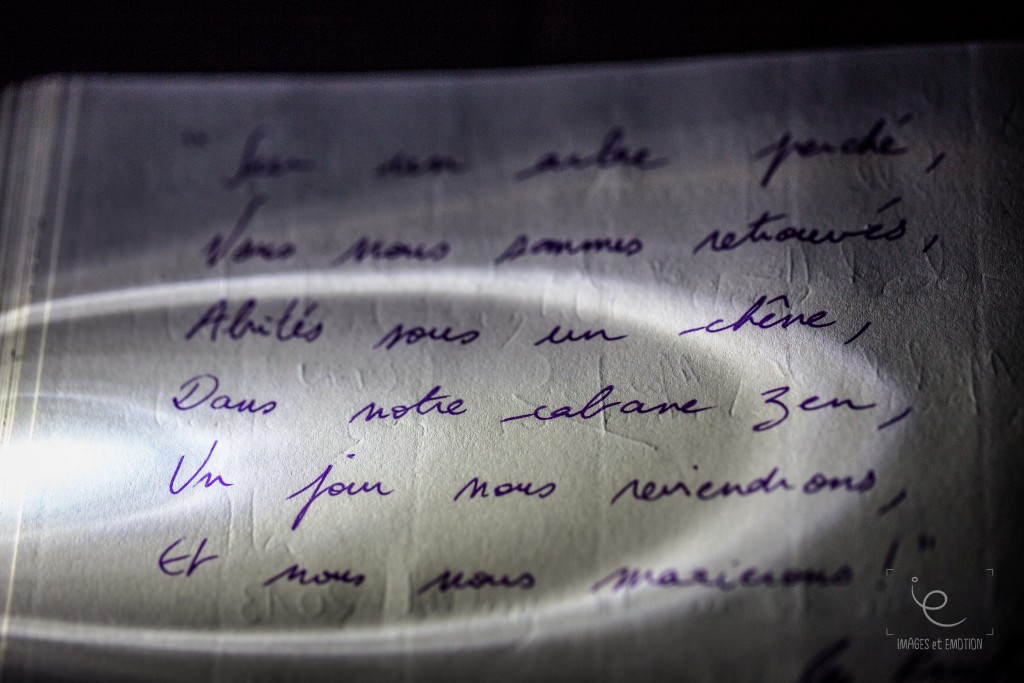 " Sur un arbre perché,
Nous nous sommes retrouvés,
Abrités sous un chêne,
Dans notre cabane zen,
Un jour nous reviendrons,
Et nous nous marierons ! "
IMAGES et EMOTION